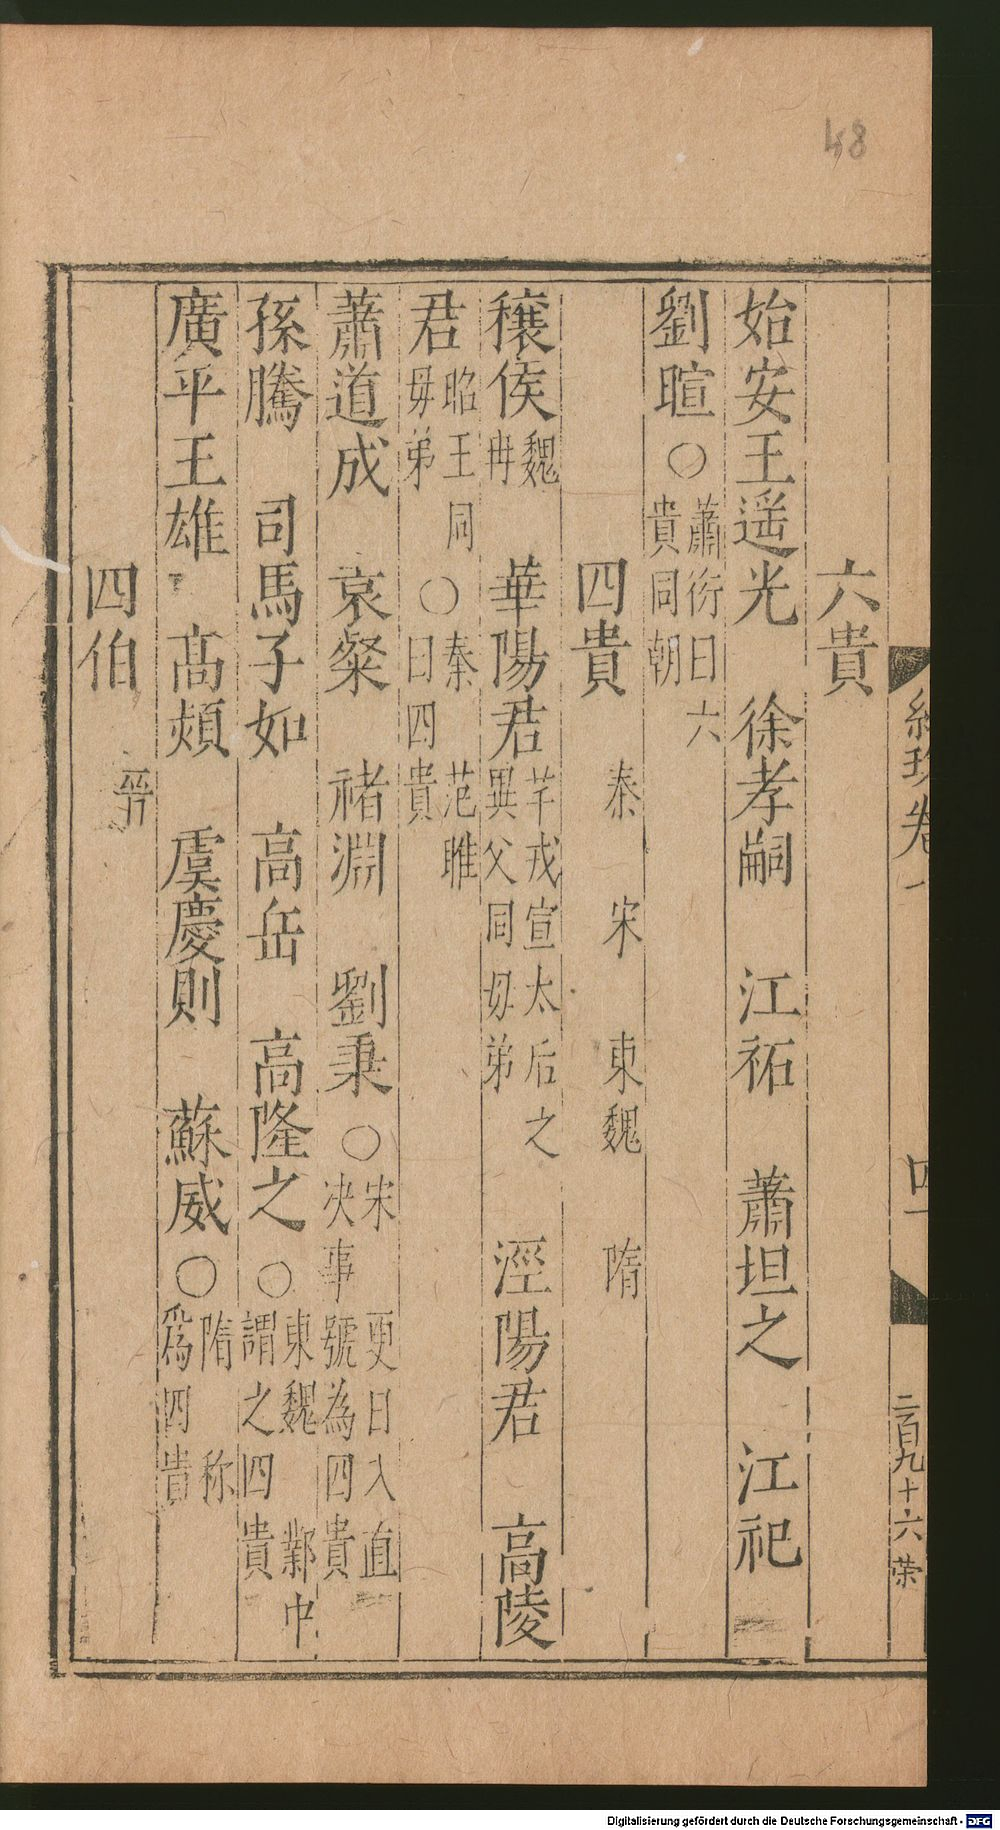 48
六貴
始安王遥光 徐孝嗣 江祏 蕭坦之 江祀
劉暄○蕭衍曰六貴同朝
四貴 秦 宋 東魏 隋
穰侯魏冉 華陽君芊戎宣太后之異父同毋弟 涇陽君 高陵
君昭王同毋弟○秦 范睢曰四貴
蕭道成 袁粲 禇淵 劉秉○宋 更日入直决事號為四貴
孫騰 司馬子如 高岳 高隆之○東魏 鄴中謂之四貴
廣平王雄 髙熲 虞慶則 蘇威○隋 称爲四貴
四伯 晉
卷一
二百九十六 荣
Digitalisierung gefördert durch die Deutsche Forschungsgemeinschaft - DFG